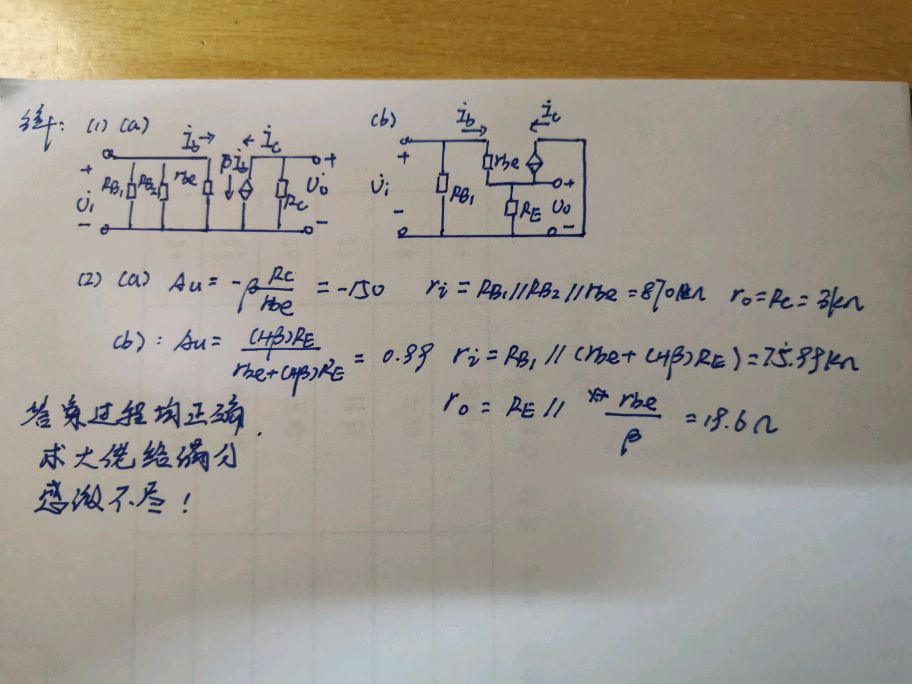 解: (1) (a)
i̇b → ← i̇c
+ RB1 RB2 rbe βi̇b Rc + U̇o
U̇i
- -
(b) i̇b i̇c
+ rbe
U̇i RB1 RE + Uo
- -
(2) (a) Au = -β Rc/rbe = -150 ri = RB1//RB2//rbe = 870Ω ro = Rc = 3kΩ
(b): Au = (1+β)RE / rbe+(1+β)RE = 0.99 ri = RB1 // (rbe + (1+β)RE) = 75.99kΩ
ro = RE // rbe/β = 19.6Ω
答案过程均正确.
求大佬给满分
感激不尽!